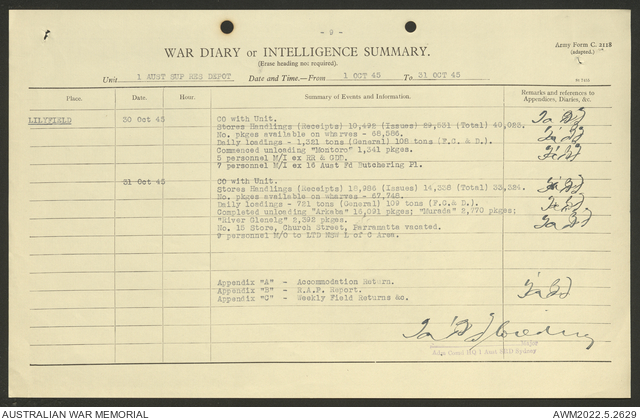 - 9 -
Army Form C. 2118
(adapted.)
WAR DIARY or INTELLIGENCE SUMMARY.
(Erase heading not required).
Unit 1 AUST SUP RES DEPOT Date and Time.—From 1 OCT 45 To 31 OCT 45
Place. Date. Hour. Summary of Events and Information. Remarks and references to Appendices, Diaries, &c.
LILYFIELD 30 Oct 45 CO with Unit.
Stores Handlings (Receipts) 10,492 (Issues) 29,531 (Total) 40,023.
No. pkges available on wharves - 68,586.
Daily loadings - 1,321 tons (General) 108 tons (F.G. & D.).
Commenced unloading "Montoro" 1,341 pkges.
5 personnel M/I ex RR & GDD.
7 personnel M/I ex 16 Aust Fd Butchering Pl.
31 Oct 45 CO with Unit.
Stores Handlings (Receipts) 18,986 (Issues) 14,338 (Total) 33,324.
No. pkges available on wharves - 67,748.
Daily loadings - 721 tons (General) 109 tons (F.G.& D.).
Completed unloading "Arkaba" 16,091 pkges; "Murada" 2,770 pkges;
"River Glenelg" 2,392 pkges.
No. 15 Store, Church Street, Parramatta vacated.
9 personnel M/O to LTD NSW L of C Area.
Appendix "A" - Accommodation Return.
Appendix "B" - R.A.P. Report.
Appendix "C" - Weekly Field Returns &c.
Major
AUSTRALIAN WAR MEMORIAL
AWM2022.5.2629